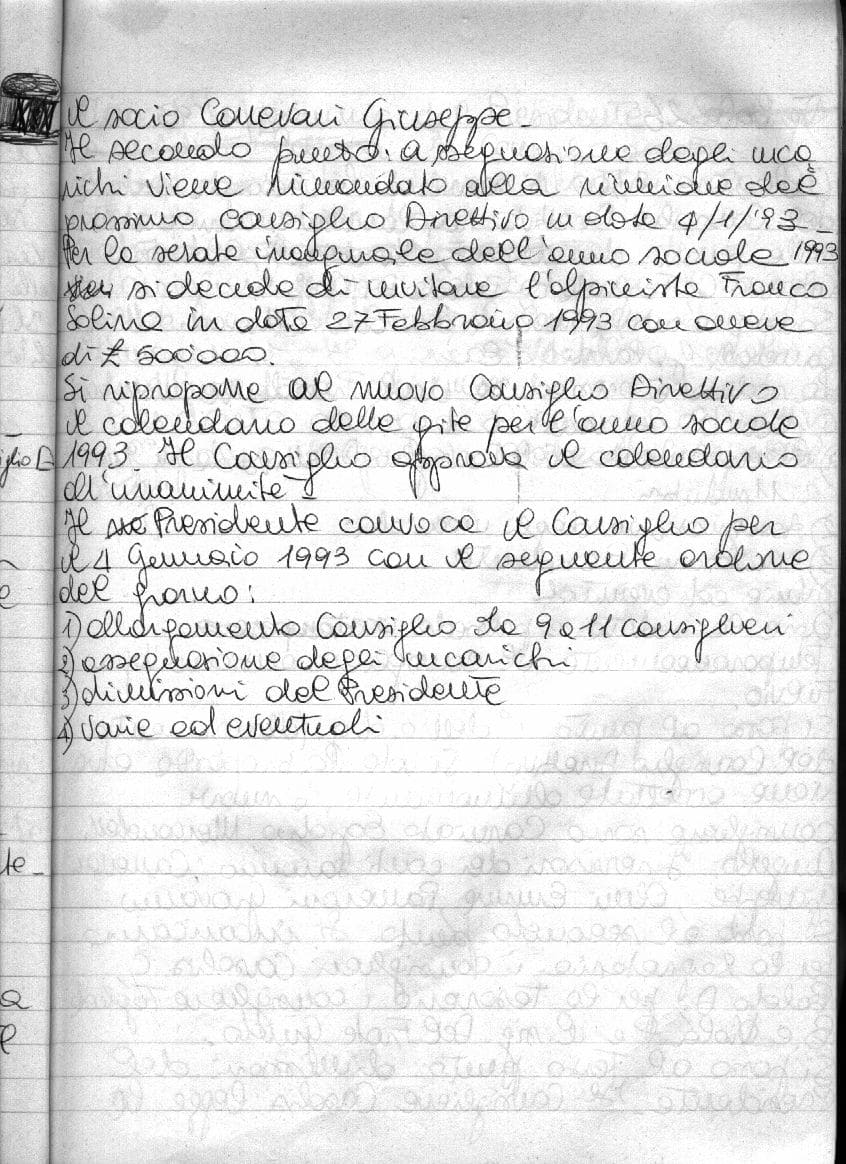 il socio Canevari Giuseppe.
Il secondo punto: assegnazione degli inca
richi viene rimandato alla riunione del
prossimo consiglio Direttivo in data 4/1/'93.
Per la serata inaugurale dell'anno sociale 1993
si decide di invitare l'alpinista Franco
Solina in data 27 Febbraio 1993 con onere
di £ 500'000.
Si ripropone al nuovo Consiglio Direttivo
il calendario delle gite per l'anno sociale
1993. Il Consiglio approva il calendario
all'unanimità
Il Presidente convoca il Consiglio per
il 4 Gennaio 1993 con il seguente ordine
del giorno:
1) allargamento Consiglio da 9 a 11 consiglieri
2) assegnazione degli incarichi
3) dimissioni del Presidente
4) varie ed eventuali